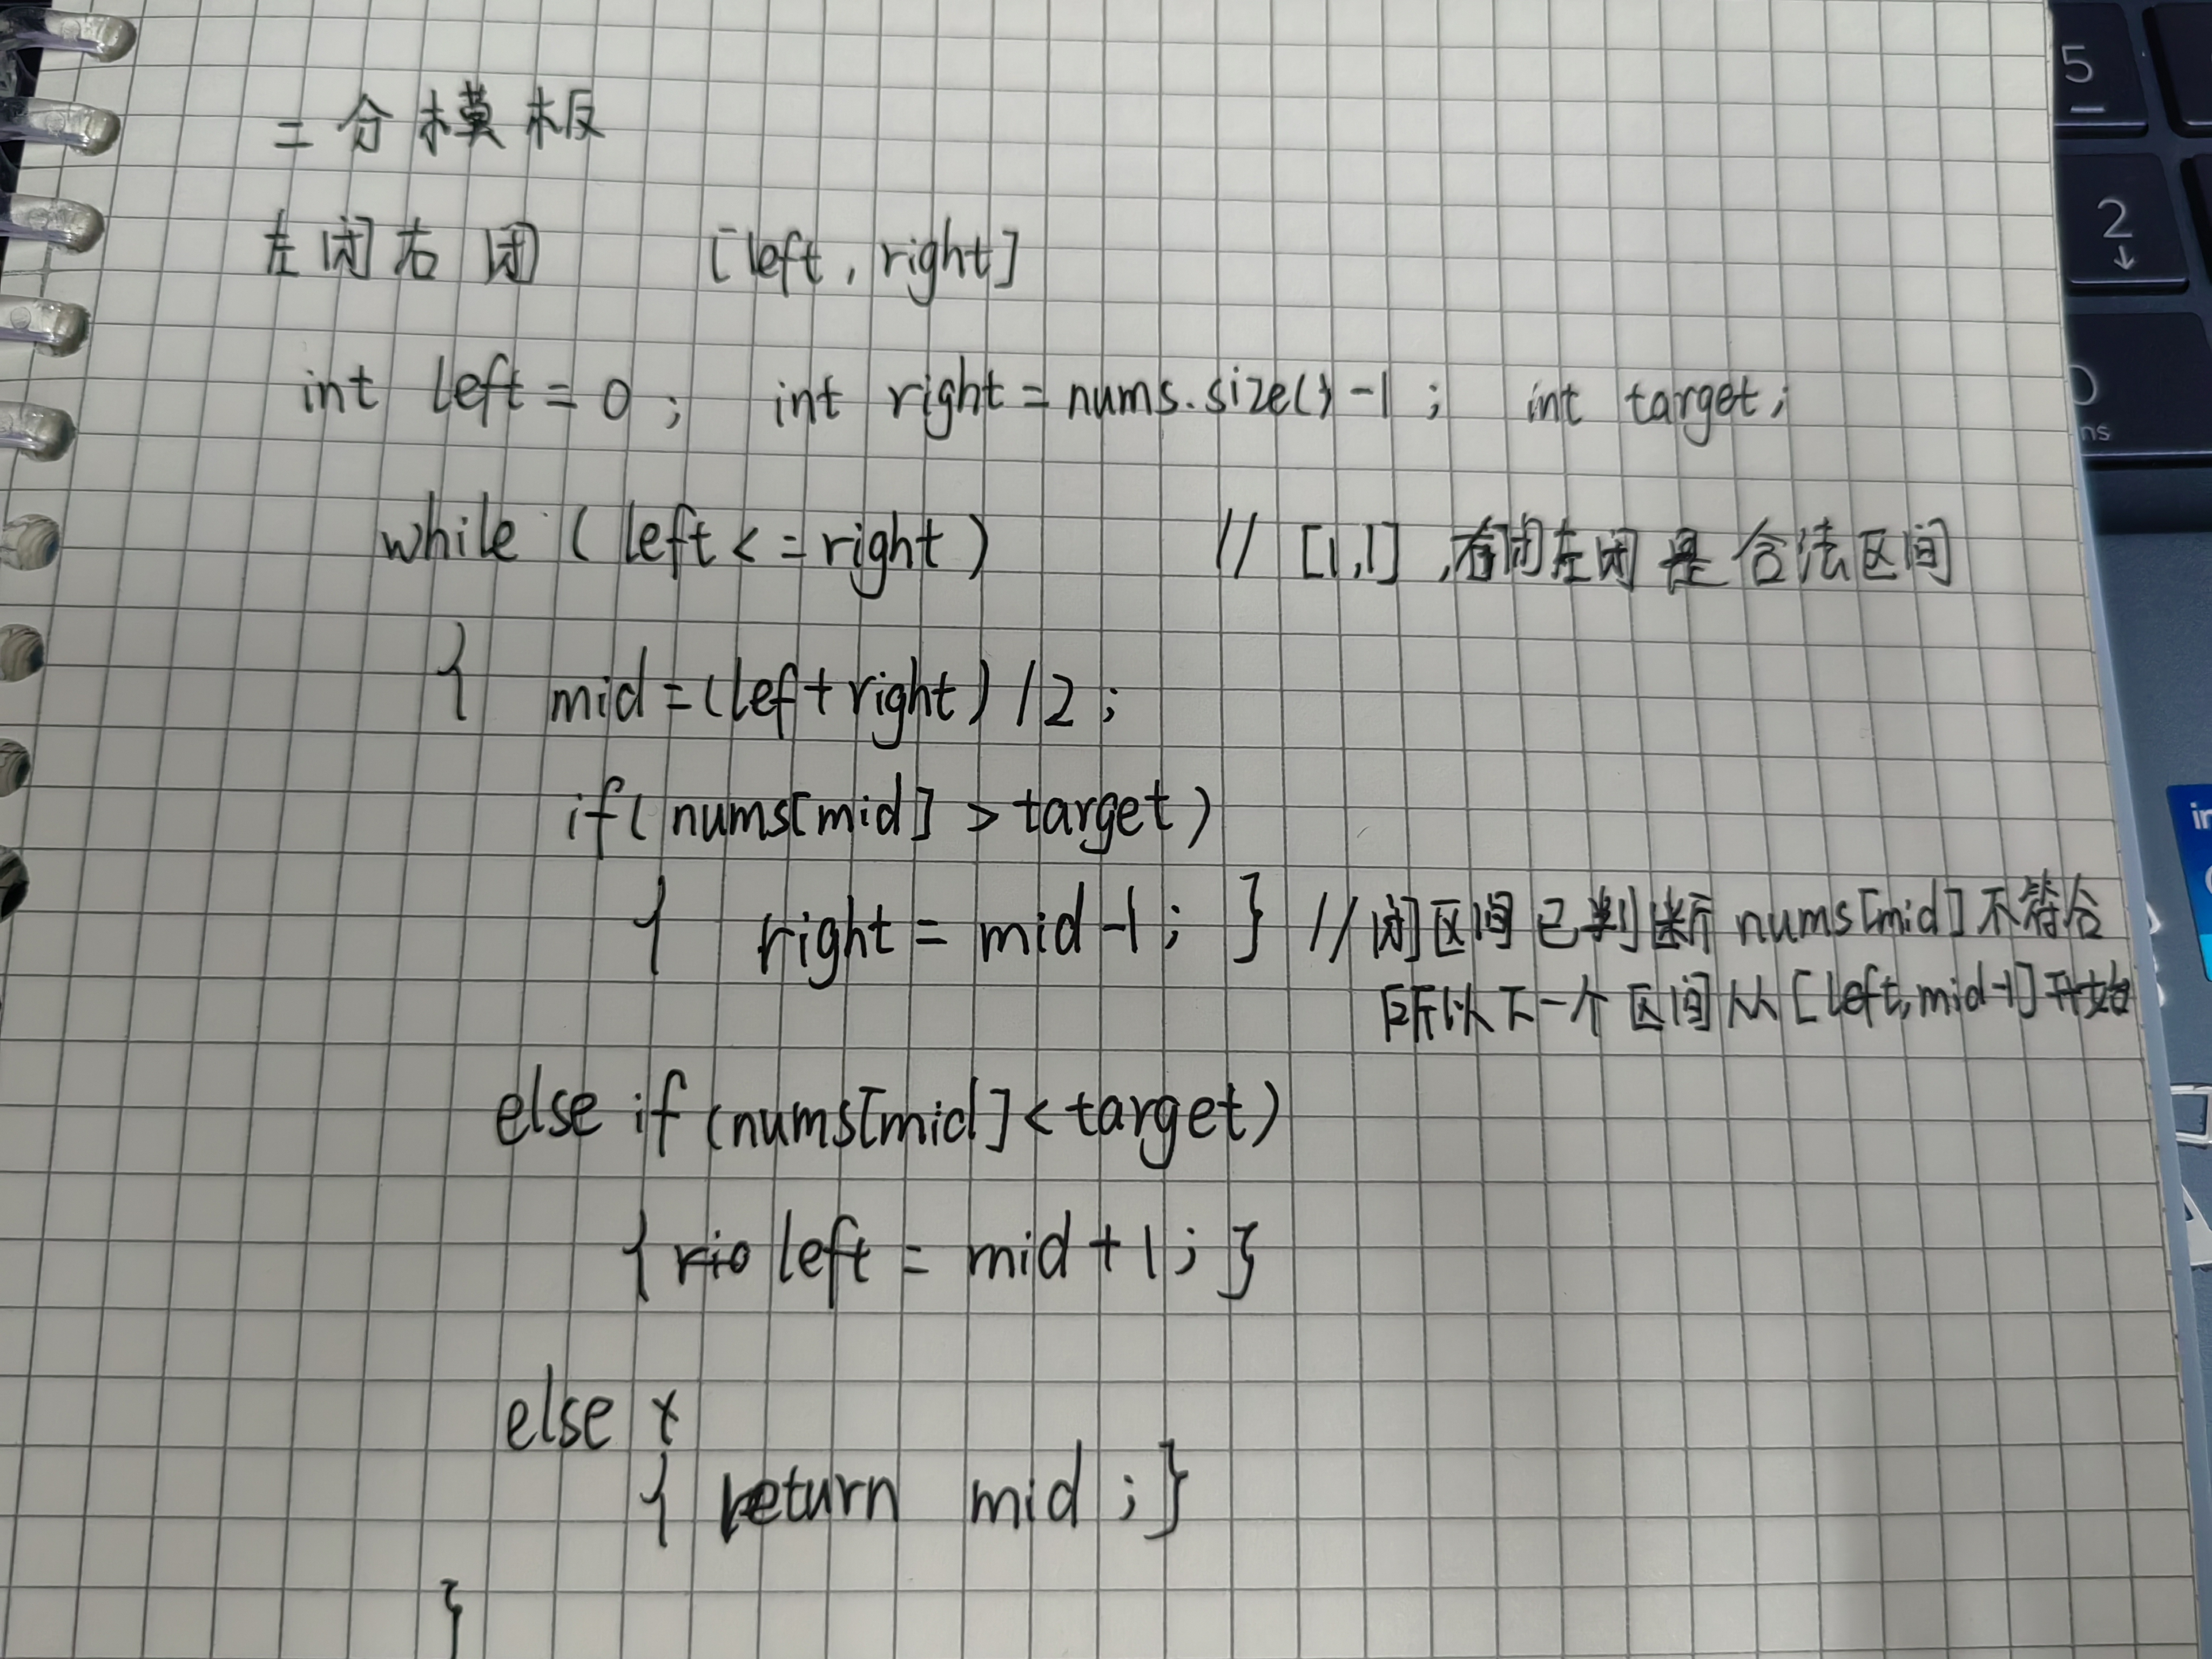 二分模板
左闭右闭 [left, right]
int left = 0; int right = nums.size()-1; int target;
while (left <= right) // [1,1],右闭左闭是合法区间
{ mid = (left + right) /2;
if( nums[mid] > target)
{ right = mid-1; } // 闭区间已判断 nums[mid] 不符合
所以下一个区间从[left, mid-1]开始
else if (nums[mid] < target)
{ left = mid + 1; }
else
{ return mid; }
}
5
2
↓